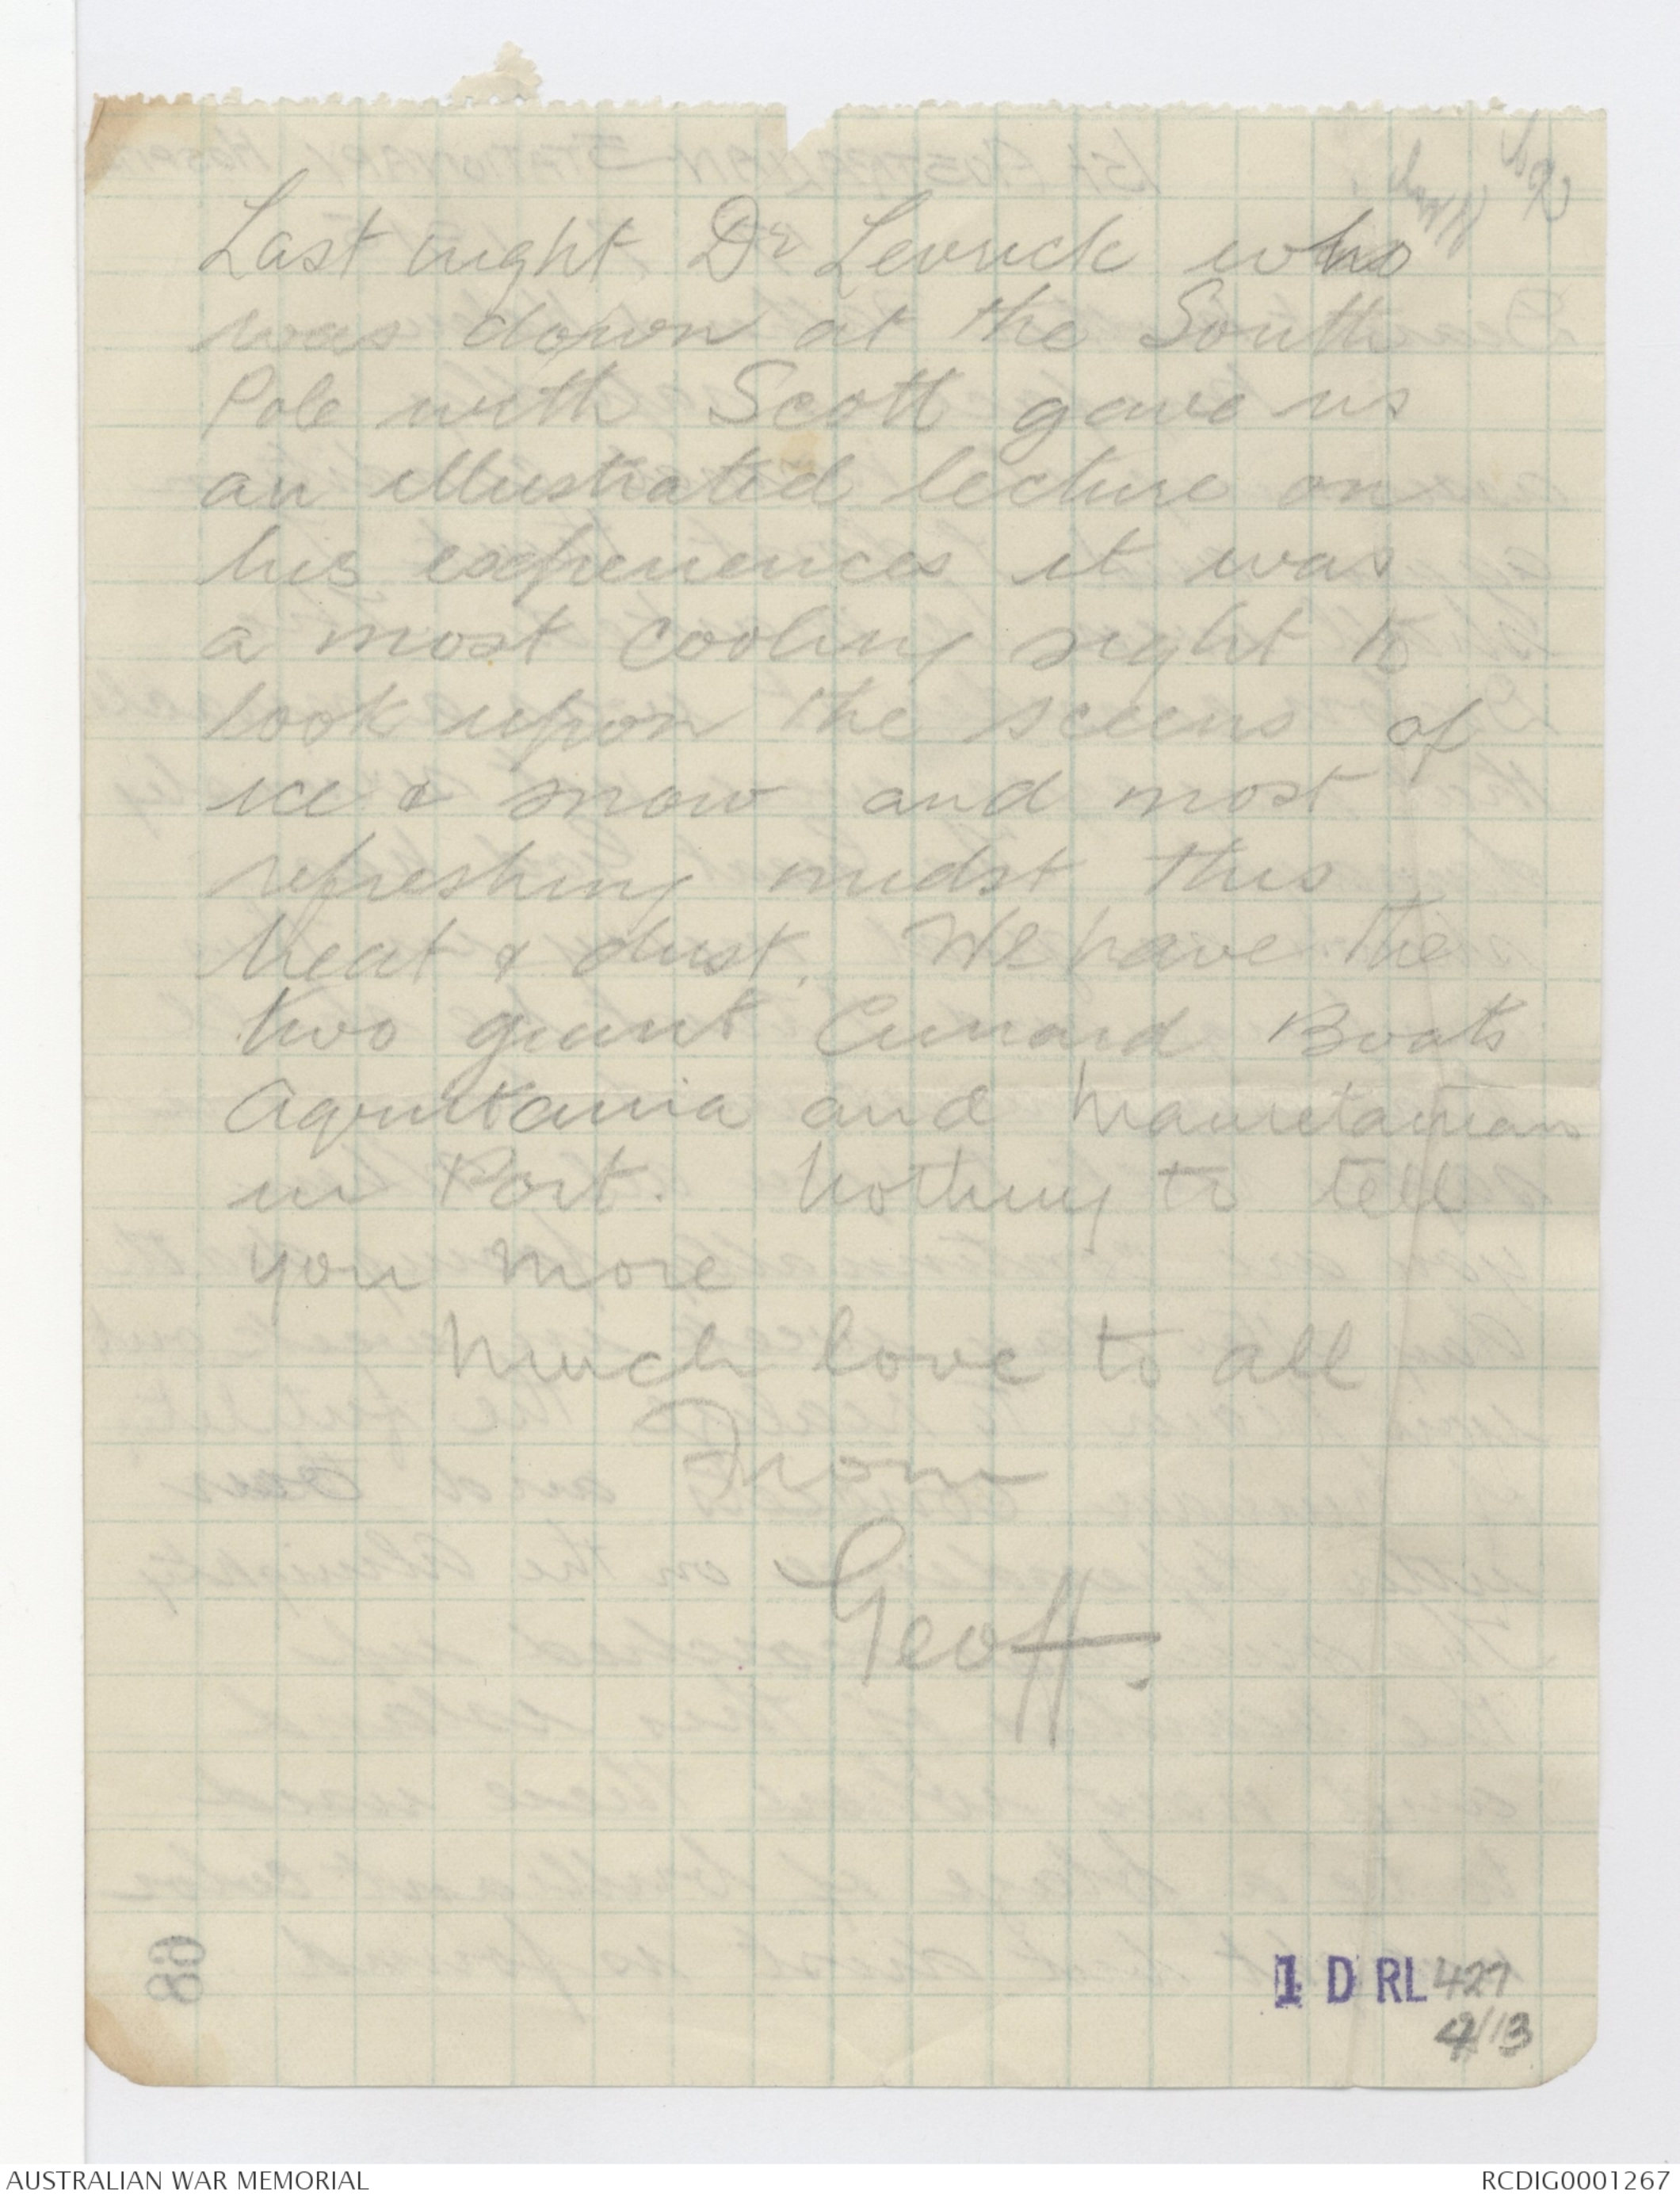 Last night Dr Levick who
was down at the South
Pole with Scott gave us
an illustrated lecture on
his experiences it was
a most cooling sight to
look upon the sceens of
ice & snow and most
refreshing midst this
heat & dust. We have the
two giant Cunard Boats
Aquitania and Mauretanian
in Port. Nothing to tell
you more
Much love to all
From
Geoff.
1 DRL 427
4/13
AUSTRALIAN WAR MEMORIAL
RCDIG0001267